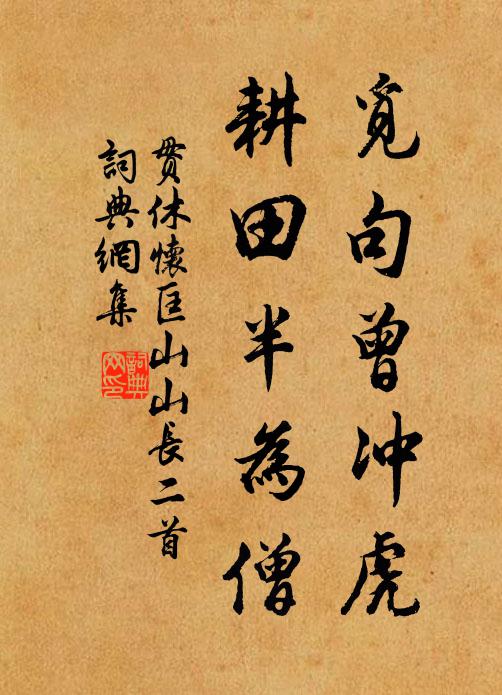 覓句曾冲虎
耕田半為僧
貫休懷匡山山長二首
詞典網集
詞典網印